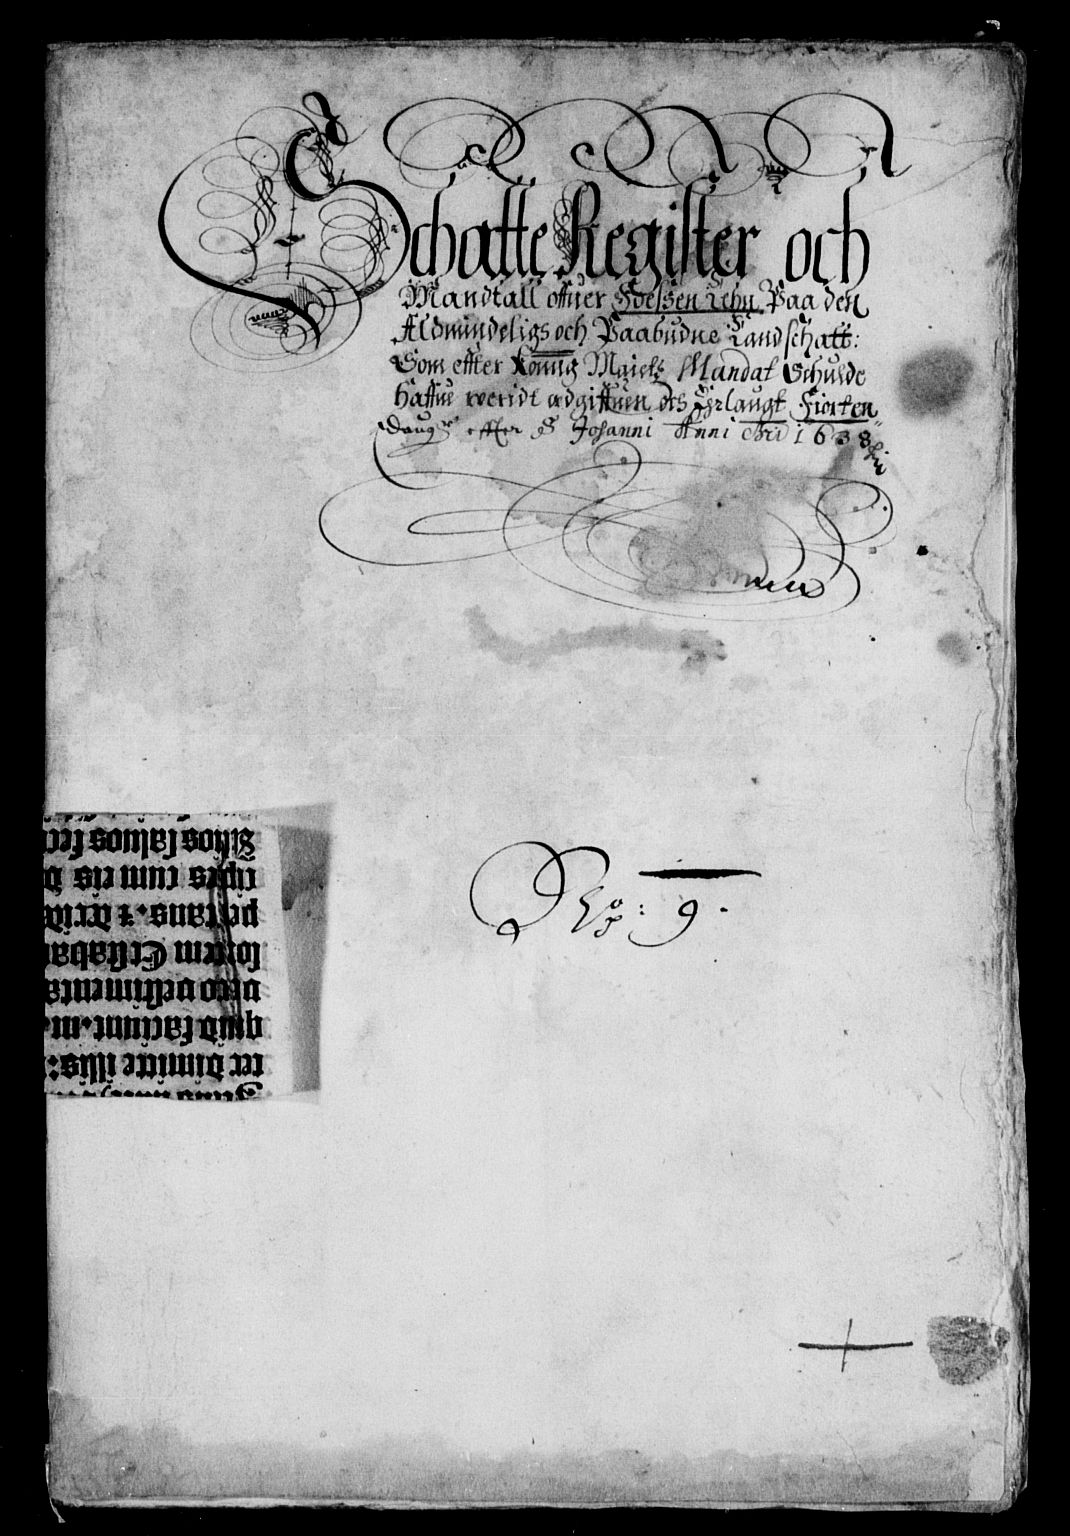 Schatte Register och
Mandtall offuer Foessen Lehn Paa den
Aldmindeligs och Paabudne Landschatt:
Som effter Konng Maiets Mandat Schulde
Haffue weridt udgiffuen
Fiorten
Daug effter S Johanni Anni 1638
No: 9.
filios falsos
cipes cum eis
petrans.
sororem Elisaba
octo vestimenta
quid faciunt. m.
ter dimitte illis: